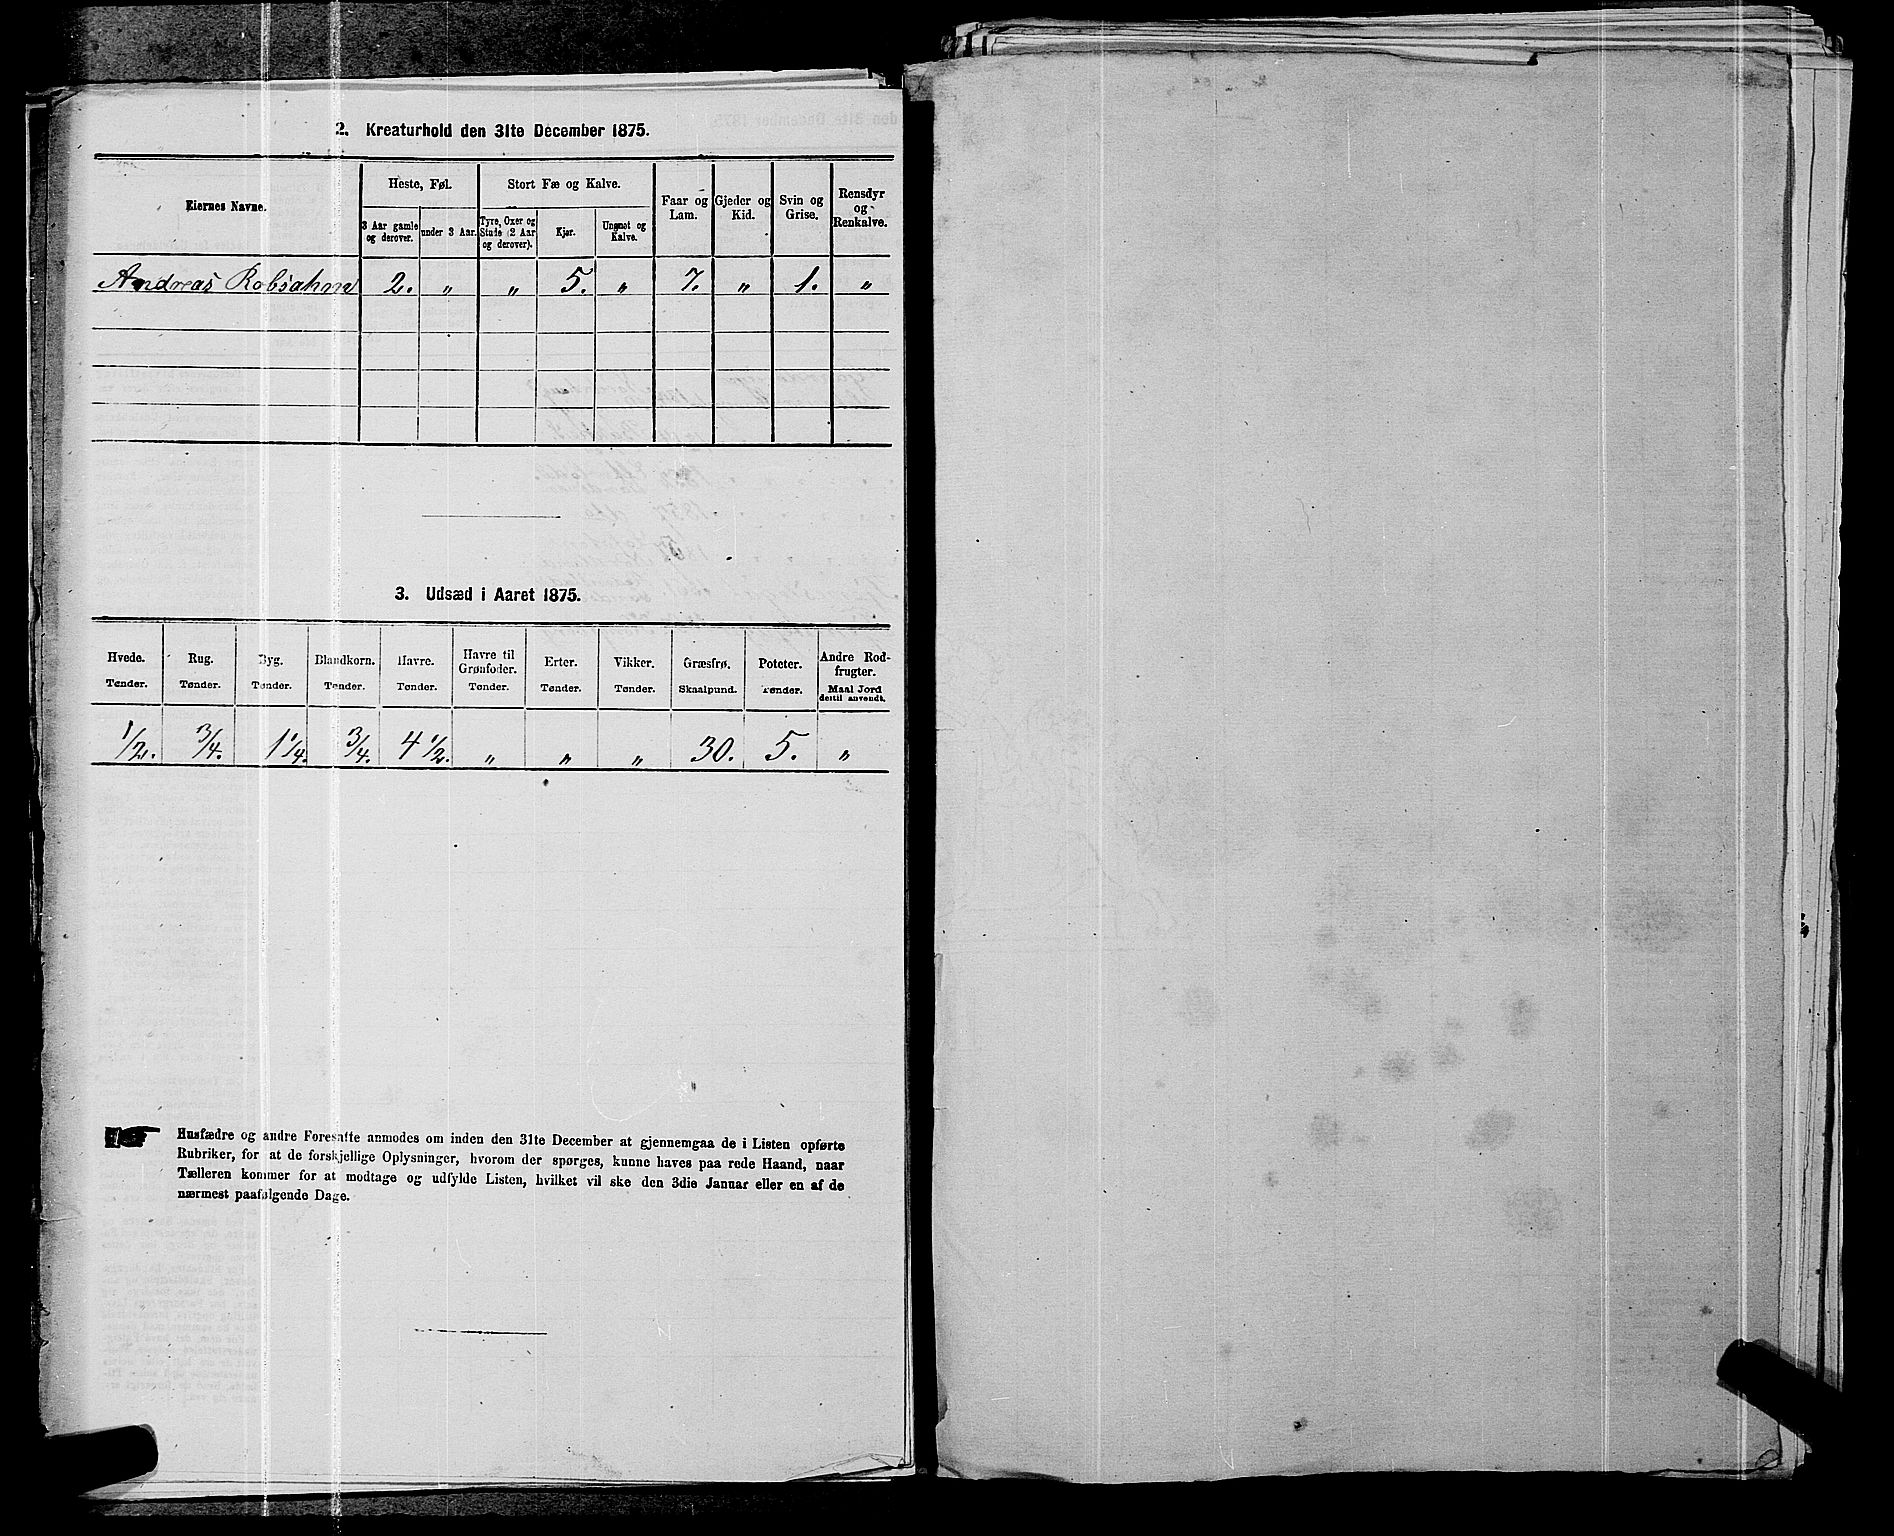 2. Kreaturhold den 31te December 1875.
Eiernes Navne.
Heste, Føl.
Stort Fæ og Kalve.
Faar og Lam.
Gjeder og Kid.
Svin og Grise.
Rensdyr og Renkalve.
3 Aar gamle og derover.
under 3 Aar.
Tyre, Oxer og Stude (2 Aar og derover).
Kjør.
Ungnøt og Kalve.
Andreas Robsahm 2. „ „ 5. „ 7. „ 1. „
3. Udsæd i Aaret 1875.
Hvede. Rug. Byg. Blandkorn. Havre. Havre til Grønfoder. Erter. Vikker. Græsfrø. Poteter. Andre Rodfrugter.
Tønder. Tønder. Tønder. Tønder. Tønder. Tønder. Tønder. Tønder. Skaalpund. Tønder. Maal Jord dertil anvendt.
1/2. 3/4. 1 1/4. 3/4. 4 1/2. „ „ „ 30. 5. „
Husfædre og andre Foresatte anmodes om inden den 31te December at gjennemgaa de i Listen opførte
Rubriker, for at de forskjellige Oplysninger, hvorom der spørges, kunne haves paa rede Haand, naar
Tælleren kommer for at modtage og udfylde Listen, hvilket vil ske den 3die Januar eller en af de
nærmest paafølgende Dage.